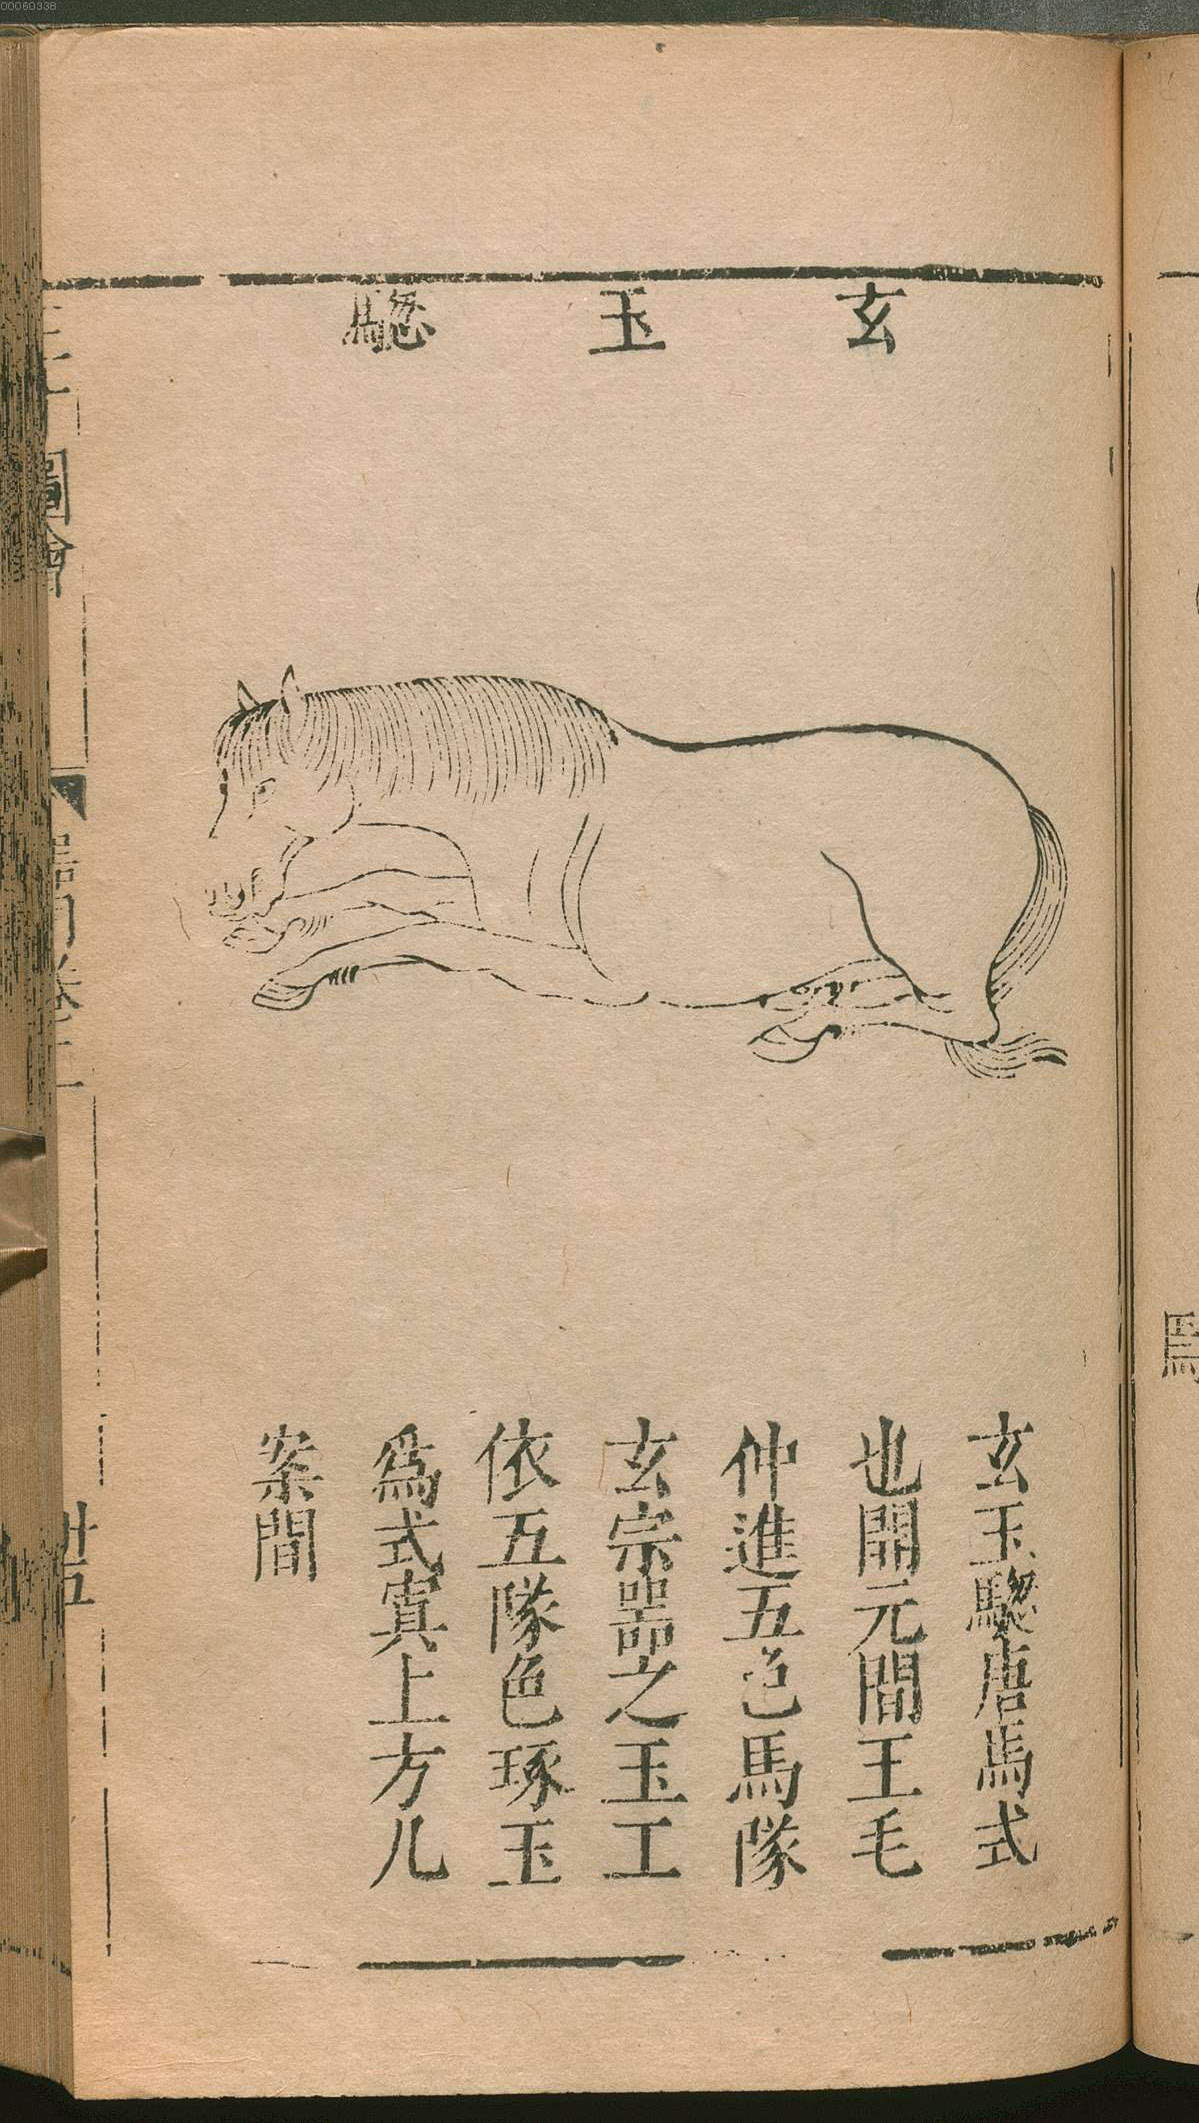 00060338
玄玉驄
玄玉驄唐馬式
也開元間王毛
仲進五色馬隊
玄宗噐之玉工
依五隊色琢玉
爲式寘上方几
案間
圖會
廿五
馬